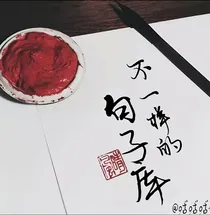 不一样的
句子库
@嘻嘻嘻